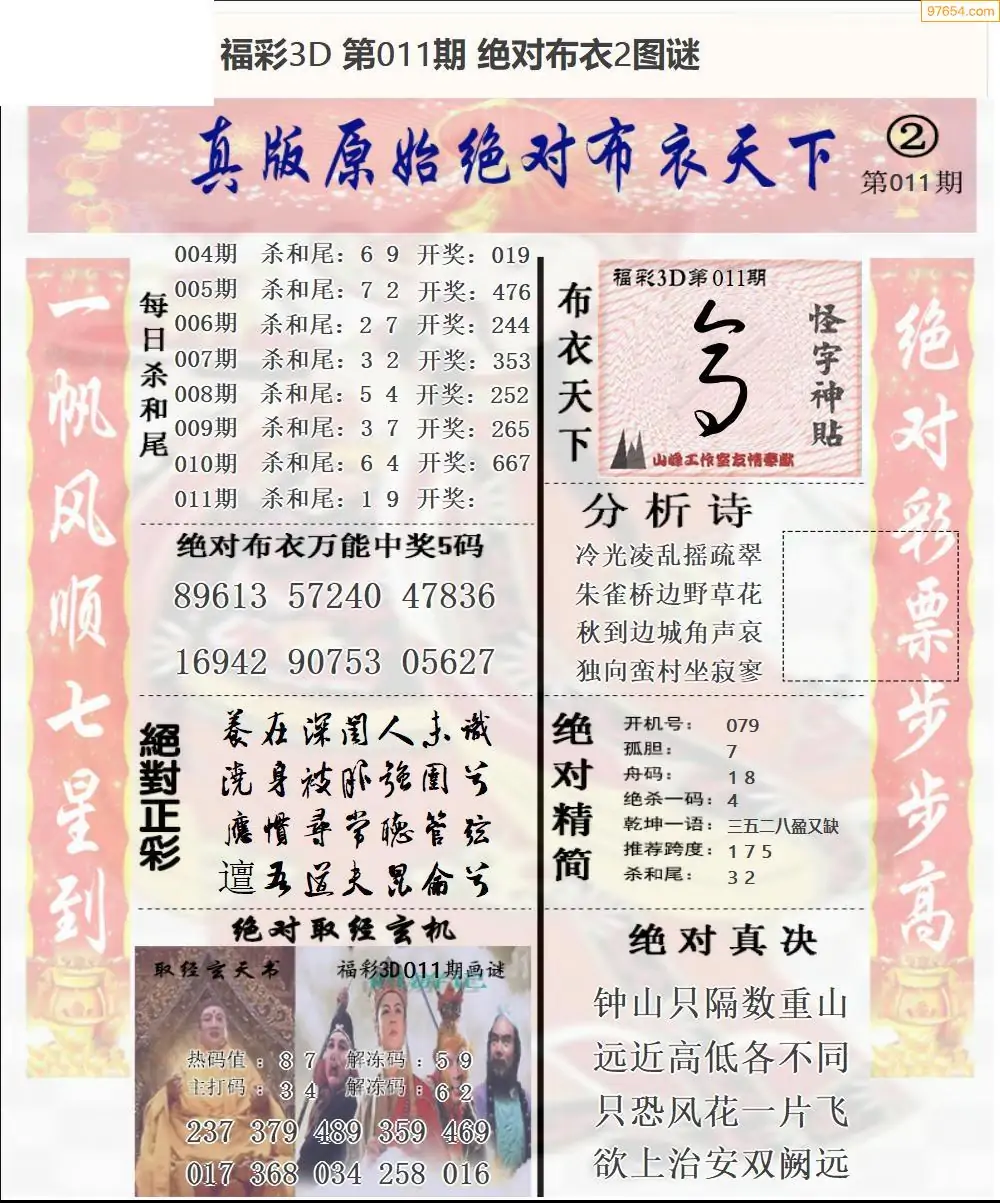 97654.com
福彩3D 第011期 绝对布衣2图谜
真版原始绝对布衣天下
②
第011期
一帆风顺七星到
每日杀和尾
004期 杀和尾：6 9 开奖：019
005期 杀和尾：7 2 开奖：476
006期 杀和尾：2 7 开奖：244
007期 杀和尾：3 2 开奖：353
008期 杀和尾：5 4 开奖：252
009期 杀和尾：3 7 开奖：265
010期 杀和尾：6 4 开奖：667
011期 杀和尾：1 9 开奖：
绝对布衣万能中奖5码
89613 57240 47836
16942 90753 05627
絕對正彩
养在深闺人未識
浇身被服强圉兮
應慣尋常聴管弦
邅吾道夫昆侖兮
绝对取经玄机
取经玄天书
福彩3D011期画谜
热码值：8 7 解冻码：5 9
主打码：3 4 解冻码：6 2
237 379 489 359 469
017 368 034 258 016
布衣天下
福彩3D第011期
怪字神貼
山峰工作室友情奉献
分析诗
冷光凌乱摇疏翠
朱雀桥边野草花
秋到边城角声哀
独向蛮村坐寂寥
绝对精简
开机号：079
孤胆：7
舟码：1 8
绝杀一码：4
乾坤一语：三五二八盈又缺
推荐跨度：1 7 5
杀和尾：3 2
绝对真决
钟山只隔数重山
远近高低各不同
只恐风花一片飞
欲上治安双阙远
绝对彩票步步高